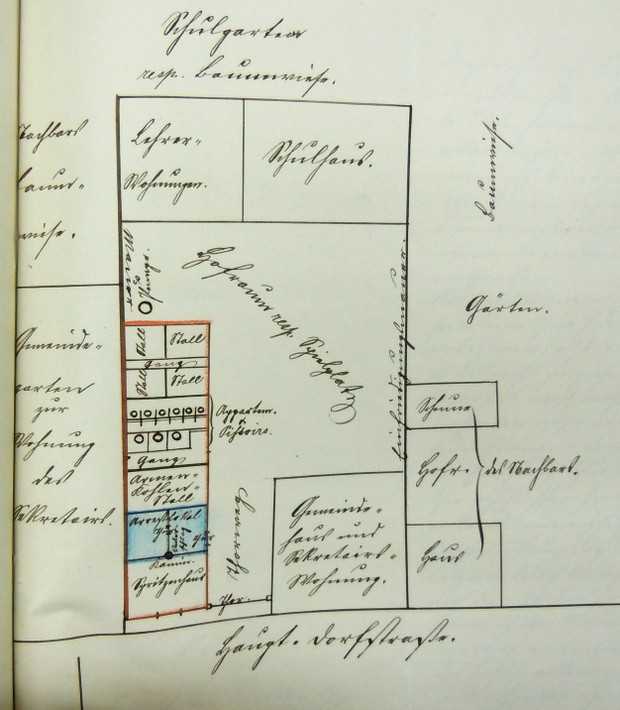 Schulgarten
resp. Baumwiese.
Nachbars
Baum-
wiese.
Lehrer-
Wohnungen.
Schulhaus.
Baumwiese.
Mauer
Hofraum resp. Spielplatz
Einfriedigungsmauer.
Gärten.
Stall
Stall
Gang
Stall
Stall
Appartem.
Pissoirs.
Gang
Armen-
Kohlen-
Stall
Arrestlokal
Thür
Kamin
Spritzenhaus
Thor.
Gemeinde-
garten
zur
Wohnung
des
Sekretairs.
Gemeinde-
haus und
Sekretairs-
Wohnung.
Scheune
Hofr.
des Nachbars.
Haus
Haupt-Dorfstraße.